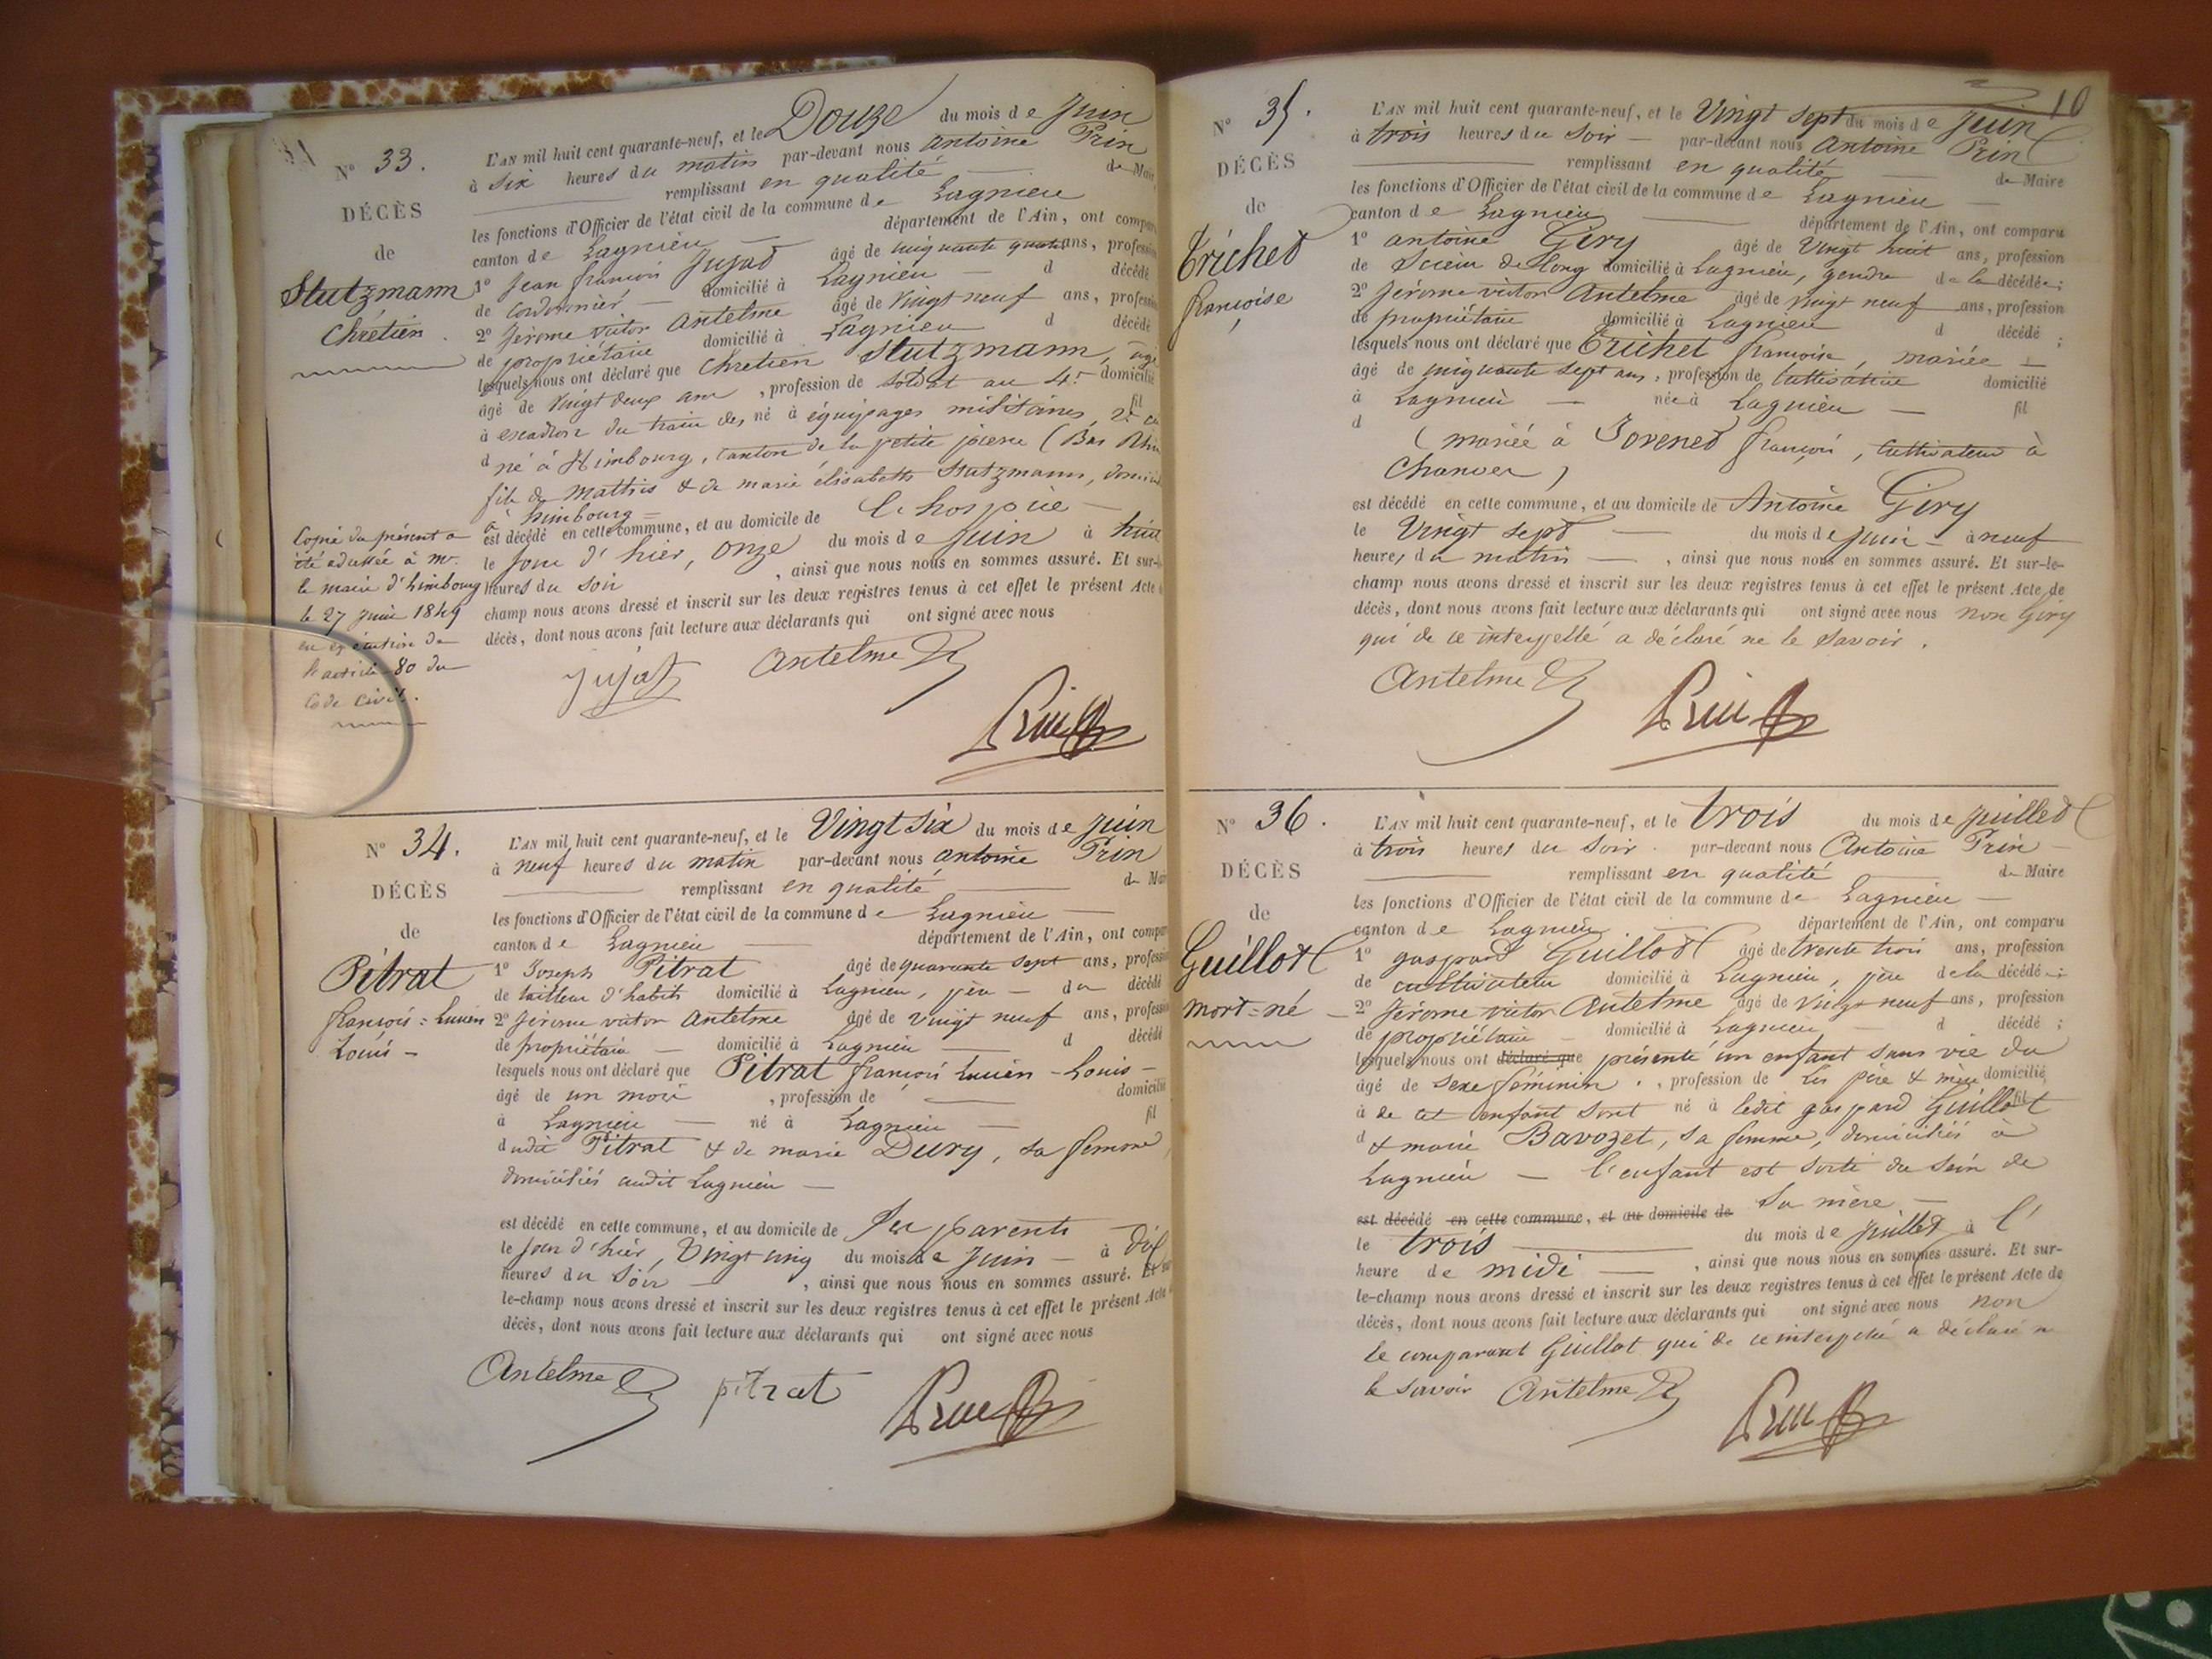 N° 33.
DÉCÈS
de
Stutzmann
Chrétien
L'AN mil huit cent quarante-neuf, et le Douze du mois de Juin
à six heures du matin par-devant nous antoine Prin
remplissant en qualité de Mai
les fonctions d'Officier de l'état civil de la commune de Lagnieu
canton de Lagnieu département de l'Ain, ont compar
1° Jean françois Jujat âgé de cinquante quatre ans, profession
de Cordonnier domicilié à Lagnieu d décédé
2° Jérome victor Antelme âgé de Vingt neuf ans, profession
de propriétaire domicilié à Lagnieu d décédé
lesquels nous ont déclaré que Chretien Stutzmann, âgé
âgé de Vingt deux ans, profession de soldat au 4e domicilié
à escadron du train des né à équipages militaires, 2e fil
d né à Himbourg, canton de la petite pierre (Bas Rhin
fils de Mathis & de marie élisabeth Stutzmann,
à himbourg =
est décédé en cette commune, et au domicile de l'hospice
le Jour d'hier, onze du mois de Juin à huit
heures du soir, ainsi que nous nous en sommes assuré. Et sur-
champ nous avons dressé et inscrit sur les deux registres tenus à cet effet le présent Acte
décès, dont nous avons fait lecture aux déclarants qui ont signé avec nous
Jujat Antelme
Prin
Copie du présent a
été adressée à mr.
le maire d'himbourg
le 27 Juin 1849
en exécution de
l'article 80 du
Code Civil.
N° 34.
DÉCÈS
de
Pitrat
françois = Lucien
Louis -
L'AN mil huit cent quarante-neuf, et le Vingt Six du mois de Juin
à neuf heures du matin par-devant nous antoine Prin
remplissant en qualité de Mai
les fonctions d'Officier de l'état civil de la commune de Lagnieu
canton de Lagnieu département de l'Ain, ont compar
1° Joseph Pitrat âgé de quarante sept ans, profession
de tailleur d'habits domicilié à Lagnieu, père du décédé
2° Jérome victor Antelme âgé de Vingt neuf ans, profession
de propriétaire domicilié à Lagnieu d décédé
lesquels nous ont déclaré que Pitrat françois Lucien - Louis -
âgé de un mois, profession de domicilié
à Lagnieu né à Lagnieu fil
dudit Pitrat & de marie Dury, sa femme
domiciliés audit Lagnieu
est décédé en cette commune, et au domicile de Ses parents
le jour d'hier, Vingt cinq du mois de Juin à dix
heures du Soir, ainsi que nous nous en sommes assuré. Et sur
le-champ nous avons dressé et inscrit sur les deux registres tenus à cet effet le présent Acte
décès, dont nous avons fait lecture aux déclarants qui ont signé avec nous
Antelme pitrat Prin
10
N° 35.
DÉCÈS
de
Trichet
françoise
L'AN mil huit cent quarante-neuf, et le Vingt sept du mois de Juin
à trois heures du Soir par-devant nous Antoine Prin
remplissant en qualité de Maire
les fonctions d'Officier de l'état civil de la commune de Lagnieu
canton de Lagnieu département de l'Ain, ont comparu
1° antoine Gery âgé de Vingt huit ans, profession
de Scieur de long domicilié à Lagnieu, gendre de la décédée;
2° Jérome victor Antelme âgé de Vingt neuf ans, profession
de propriétaire domicilié à Lagnieu d décédé ;
lesquels nous ont déclaré que Trichet françoise, mariée
âgé de cinquante sept ans, profession de Cultivatrice domicilié
à Lagnieu née à Lagnieu fil
d (mariée à Jovenet françois, Cultivateur à
Chanves)
est décédé en cette commune, et au domicile de Antoine Gery
le Vingt sept du mois de Juin à neuf
heures du matin, ainsi que nous nous en sommes assuré. Et sur-le-
champ nous avons dressé et inscrit sur les deux registres tenus à cet effet le présent Acte de
décès, dont nous avons fait lecture aux déclarants qui ont signé avec nous non Gery
qui de ce interpellé a déclaré ne le savoir.
Antelme Prin
N° 36.
DÉCÈS
de
Guillot
mort = né
L'AN mil huit cent quarante-neuf, et le trois du mois de Juillet
à trois heures du Soir. par-devant nous Antoine Prin
remplissant en qualité de Maire
les fonctions d'Officier de l'état civil de la commune de Lagnieu
canton de Lagnieu département de l'Ain, ont comparu
1° gaspard Guillot âgé de trente trois ans, profession
de cultivateur domicilié à Lagnieu, père de la décédée;
2° Jérome victor Antelme âgé de Vingt neuf ans, profession
de propriétaire domicilié à Lagnieu d décédé ;
lesquels nous ont déclaré que présenté un enfant sans vie du
âgé de sexe féminin., profession de Les père & mère domicilié
à de cet enfant sont né à ledit gaspard Guillot fil
d & marie Bavozet, sa femme, domiciliés à
Lagnieu — l'enfant est sorti du sein de
est décédé en cette commune, et au domicile de Sa mère
le trois du mois de Juillet à l'
heure de midi, ainsi que nous nous en sommes assuré. Et sur-
le-champ nous avons dressé et inscrit sur les deux registres tenus à cet effet le présent Acte de
décès, dont nous avons fait lecture aux déclarants qui ont signé avec nous non
le comparant Guillot qui de ce interpellé a déclaré n
le savoir Antelme Prin